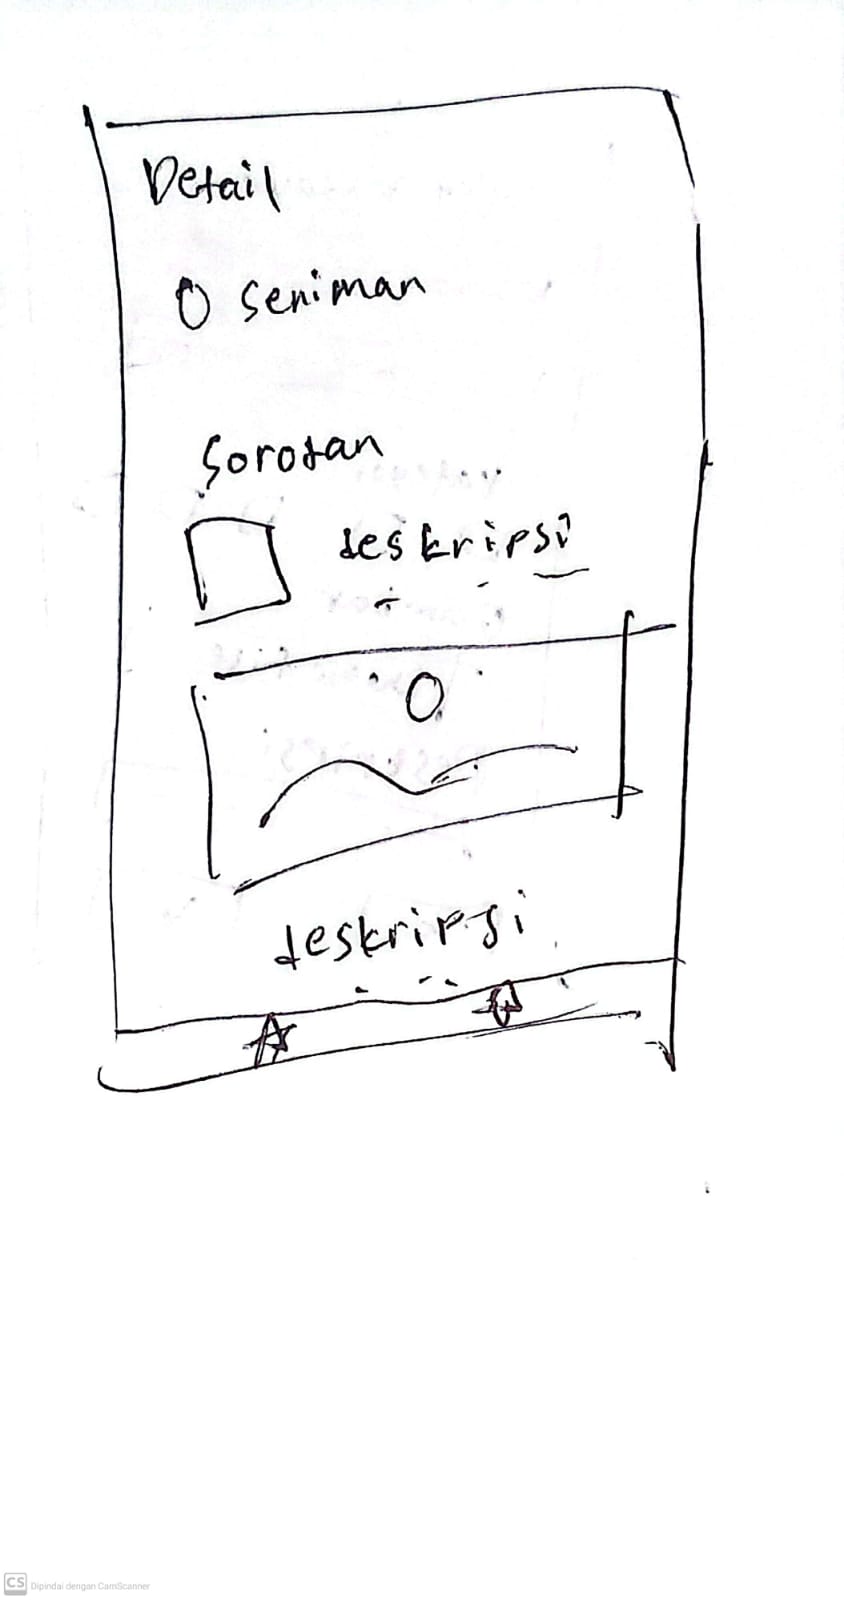 Detail
Seniman
Sorotan
deskripsi
deskripsi
CS Dipindai dengan CamScanner